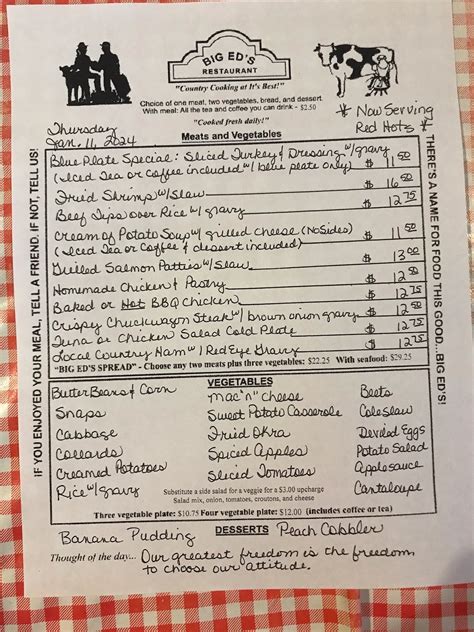 BIG ED'S
RESTAURANT
"Country Cooking at It's Best!"
Choice of one meat, two vegetables, bread, and dessert.
With meal: All the tea and coffee you can drink - $2.50
"Cooked fresh daily!"
* Now Serving
Red Hots *
Thursday
Jan. 11, 2024
Meats and Vegetables
Blue Plate Special: Sliced Turkey & Dressing w/gravy
(Iced Tea or Coffee included w/ blue plate only) $ 11 50
Fried Shrimp w/Slaw $ 16 50
Beef Tips over Rice w/ gravy $ 12 75
Cream of Potato Soup w/ grilled cheese (No Sides)
(Iced Tea or Coffee & dessert included) $ 11 50
Grilled Salmon Patties w/ Slaw $ 13 00
Homemade Chicken & Pastry $ 12 50
Baked or Hot BBQ Chicken $ 12 75
Crispy Chuckwagon Steak w/ brown onion gravy $ 12
Tuna or Chicken Salad Cold Plate $ 12 75
Local Country Ham w/ Red Eye Gravy $ 12 75
"BIG ED'S SPREAD" - Choose any two meats plus three vegetables: $22.25 With seafood: $29.25
IF YOU ENJOYED YOUR MEAL, TELL A FRIEND. IF NOT, TELL US!
THERE'S A NAME FOR FOOD THIS GOOD...BIG ED'S!
VEGETABLES
Butter Beans & Corn
Snaps
Cabbage
Collards
Creamed Potatoes
Rice w/ gravy
Mac "n" cheese
Sweet Potato Casserole
Fried Okra
Spiced Apples
Sliced Tomatoes
Beets
Coleslaw
Deviled Eggs
Potato Salad
Applesauce
Cantaloupe
Substitute a side salad for a veggie for a $3.00 upcharge
Salad mix, onion, tomatoes, croutons, and cheese
Three vegetable plate: $10.75 Four vegetable plate: $12.00 (includes coffee or tea)
DESSERTS
Banana Pudding Peach Cobbler
Thought of the day... Our greatest freedom is the freedom
to choose our attitude.